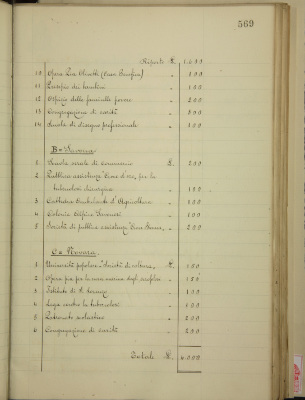 569
Riporto L. 1.600
10 Opera Pia 100
11 Presepio dei bambini " 100
12 Ospizio delle fanciulle povere " 200
13 Congregazione di carità " 500
14 Scuola di disegno professionale " 100
B = Savona
1 Scuola serale di commercio L. 200
2 Pubblica assistenza "Croce d'oro" per la
tubercolosi " 100
3 Cattedra Ambulante d'Agricoltura " 100
4 Colonia " 100
5 Società di pubblica assistenza "Croce " 200
C = Novara
1 Università popolare "Società di cultura" L. 100
2 Opera pia per la cura marina degli scrofolosi " 150
3 Istituto di S. Lorenzo " 100
4 Lega contro la tubercolosi " 100
5 Patronato scolastico " 200
6 Congregazione di carità " 250
Totale L. 4.000